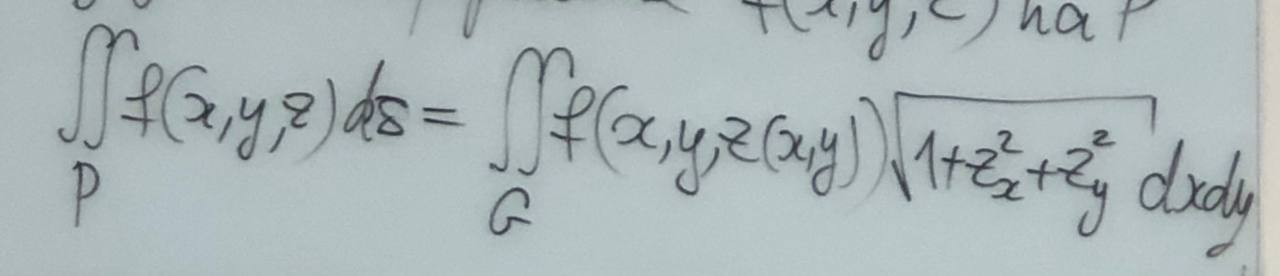 f(x,y,z) на P
∬_P f(x,y,z)ds = ∬_G f(x,y,z(x,y))√(1+z_x^2+z_y^2) dxdy